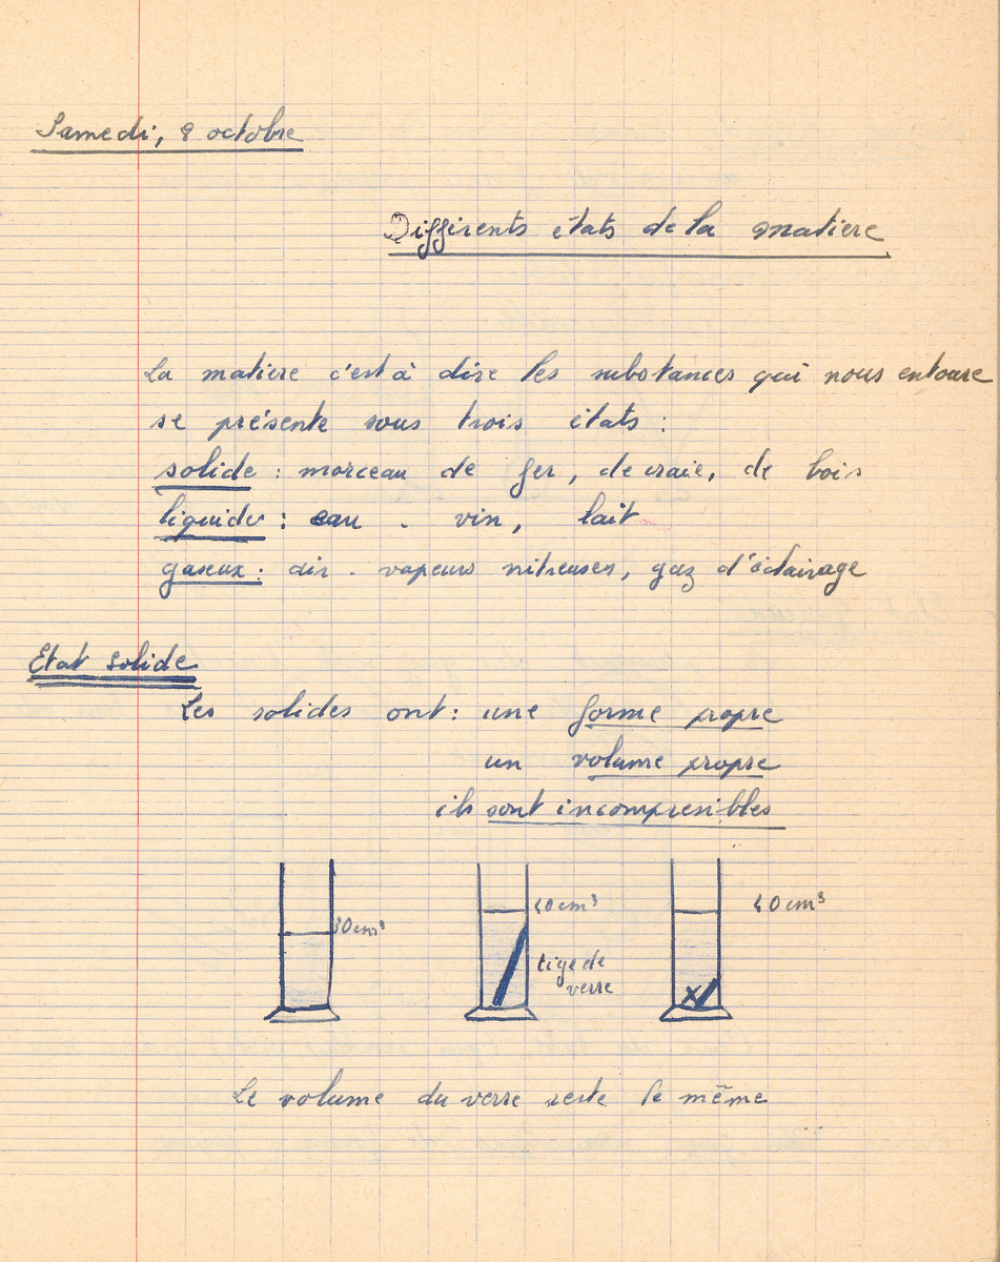 Samedi, 8 octobre
Différents états de la matiere
La matiere c'est à dire les substances qui nous entoure
se présente sous trois états :
solide : morceau de fer, de craie, de bois
liquide : eau . vin, lait
gaseux : air . vapeurs nitreuses, gaz d'éclairage
Etat solide
Les solides ont : une forme propre
un volume propre
ils sont incompresibles
30cm³ 40cm³ 40cm³
tige de
verre
Le volume du verre reste le même